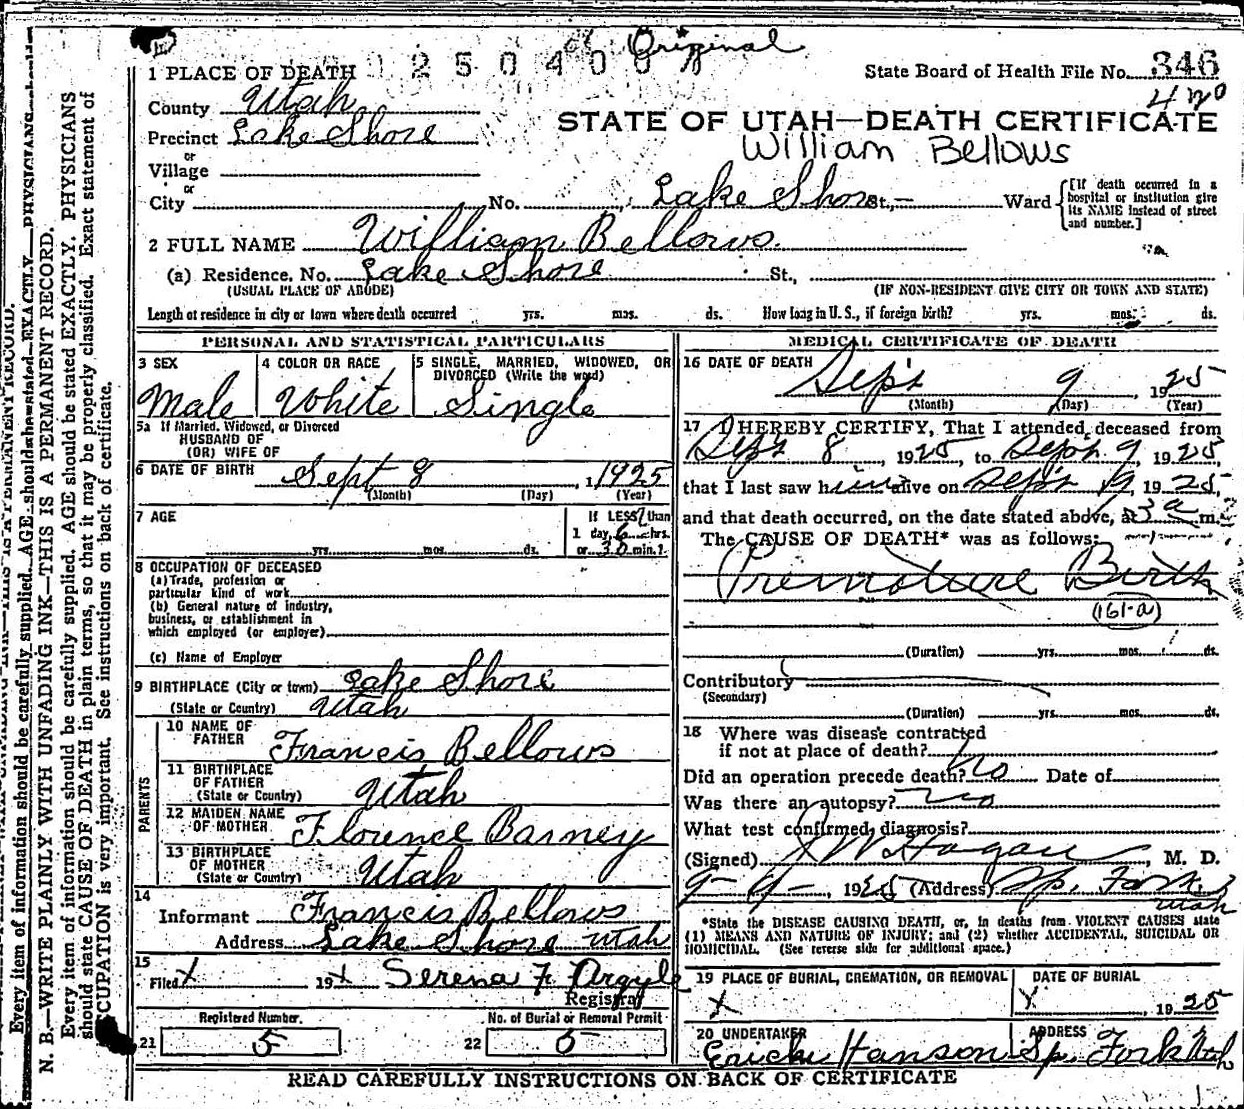 Original
2504007
1 PLACE OF DEATH
State Board of Health File No. 346
County Utah
420
Precinct Lake Shore
STATE OF UTAH—DEATH CERTIFICATE
or
William Bellows
Village
or
City No. Lake Shore St.,— Ward
[If death occurred in a hospital or institution give its NAME instead of street and number.]
2 FULL NAME William Bellows.
(a) Residence. No. Lake Shore St.,
(USUAL PLACE OF ABODE) (IF NON-RESIDENT GIVE CITY OR TOWN AND STATE)
Length of residence in city or town where death occurred yrs. mos. ds. How long in U. S., if foreign birth? yrs. mos. ds.
PERSONAL AND STATISTICAL PARTICULARS
3 SEX
Male
4 COLOR OR RACE
White
5 SINGLE, MARRIED, WIDOWED, OR
DIVORCED (Write the word)
Single
5a If Married, Widowed, or Divorced
HUSBAND OF
(OR) WIFE OF
6 DATE OF BIRTH Sept 8, 1925
(Month) (Day) (Year)
7 AGE
yrs. mos. ds.
If LESS than
1 day, 6 hrs.
or 30 min.?
8 OCCUPATION OF DECEASED
(a) Trade, profession or
particular kind of work
(b) General nature of industry,
business, or establishment in
which employed (or employer)
(c) Name of Employer
9 BIRTHPLACE (City or town) Lake Shore
(State or Country) Utah
PARENTS
10 NAME OF
FATHER Francis Bellows
11 BIRTHPLACE
OF FATHER
(State or Country) Utah
12 MAIDEN NAME
OF MOTHER Florence Barney
13 BIRTHPLACE
OF MOTHER
(State or Country) Utah
14
Informant Francis Bellows
Address Lake Shore Utah
15
Filed X 19X Serena F. Argyle
Registrar
Registered Number.
21 5
No. of Burial or Removal Permit
22 5
MEDICAL CERTIFICATE OF DEATH
16 DATE OF DEATH
Sept 9 1925
(Month) (Day) (Year)
17 I HEREBY CERTIFY, That I attended deceased from
Sept 8, 1925, to Sept 9 1925,
that I last saw him alive on Sept 9, 1925,
and that death occurred, on the date stated above, at 3 a m.
The CAUSE OF DEATH* was as follows:
Premature Birth
(161-a)
(Duration) yrs. mos. ds.
Contributory
(Secondary)
(Duration) yrs. mos. ds.
18 Where was disease contracted
if not at place of death?
Did an operation precede death? No Date of
Was there an autopsy? No
What test confirmed diagnosis?
(Signed) J W Hagan, M. D.
9-9-, 1925 (Address) Sp. Fork, Utah
*State the DISEASE CAUSING DEATH, or, in deaths from VIOLENT CAUSES state
(1) MEANS AND NATURE OF INJURY; and (2) whether ACCIDENTAL, SUICIDAL OR
HOMICIDAL. (See reverse side for additional space.)
19 PLACE OF BURIAL, CREMATION, OR REMOVAL
X
DATE OF BURIAL
X 1925
20 UNDERTAKER
Hanson
ADDRESS
Sp. Fork Utah
READ CAREFULLY INSTRUCTIONS ON BACK OF CERTIFICATE
N. B.—WRITE PLAINLY WITH UNFADING INK—THIS IS A PERMANENT RECORD.
Every item of information should be carefully supplied. AGE should be stated EXACTLY. PHYSICIANS
should state CAUSE OF DEATH in plain terms, so that it may be properly classified. Exact statement of
OCCUPATION is very important. See instructions on back of certificate.